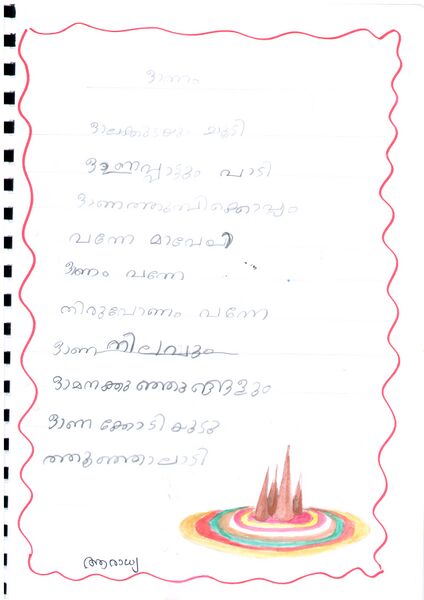 ഓണം
ഓലക്കുടയും ചൂടി
ഓണപ്പാട്ടും പാടി
ഓണത്തുമ്പിക്കൊപ്പം
വന്നേ മാവേലി
ഓണം വന്നേ
തിരുവോണം വന്നേ
ഓണ നിലവും
ഓമനക്കുഞ്ഞുങ്ങളും
ഓണക്കോടിയുടു
ത്തൂഞ്ഞാലാടി
ആരാധ്യ